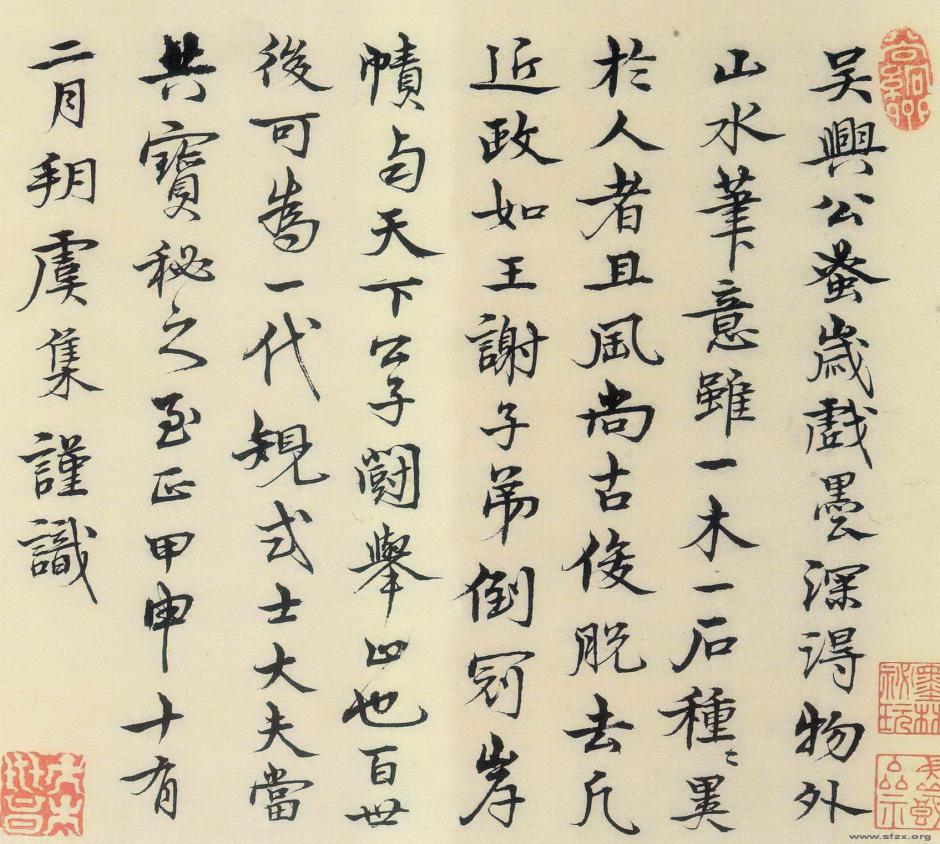 吴興公蚤歲戲墨深得物外
山水筆意雖一木一石種〻異
於人者且風尚古俊脱去凡
近政如王謝子弟倒冠岸
幘与天下公子鬪舉止也百世
後可為一代規式士大夫當
共寶秘之至正甲申十有
二月朔虞集謹識
www.sfzx.org